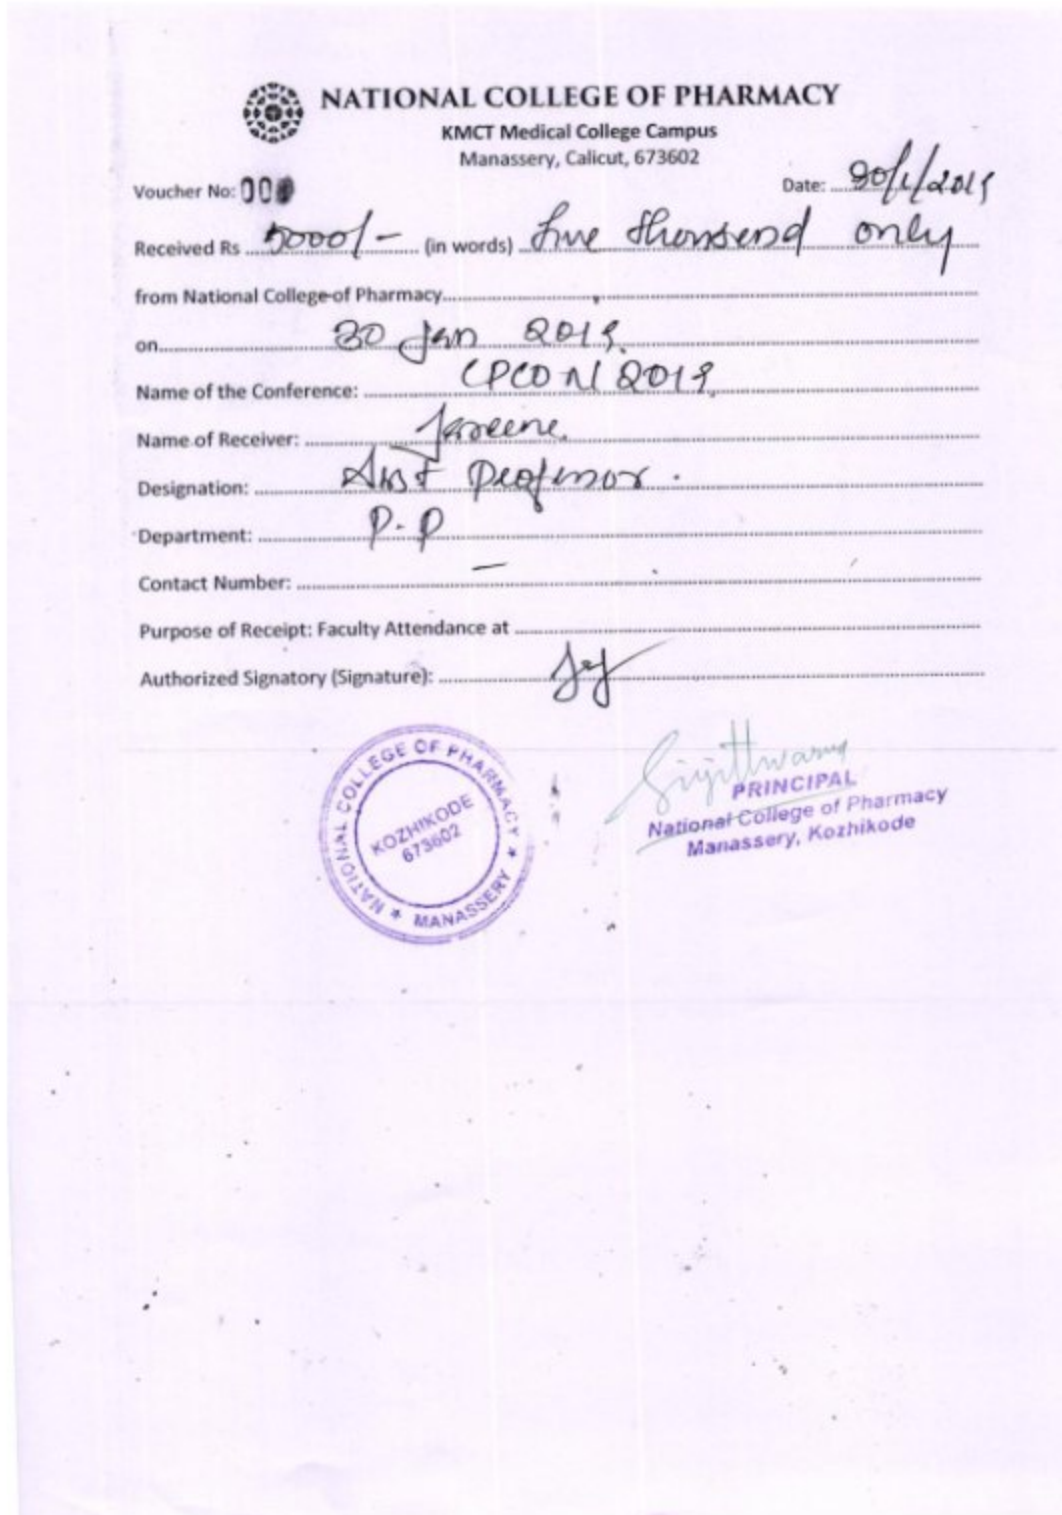 NATIONAL COLLEGE OF PHARMACY
KMCT Medical College Campus
Manassery, Calicut, 673602
Voucher No: 00
Date: 30/1/2019
Received Rs 5000/- (in words) five thousend only
from National College of Pharmacy
on 30 Jan 2019.
Name of the Conference: CPCON 2019
Name of Receiver: Jaseene.
Designation: Asst Professor.
Department: P.P
Contact Number: —
Purpose of Receipt: Faculty Attendance at
Authorized Signatory (Signature):
NATIONAL COLLEGE OF PHARMACY ★ MANASSERY ★
KOZHIKODE
673602
PRINCIPAL
National College of Pharmacy
Manassery, Kozhikode